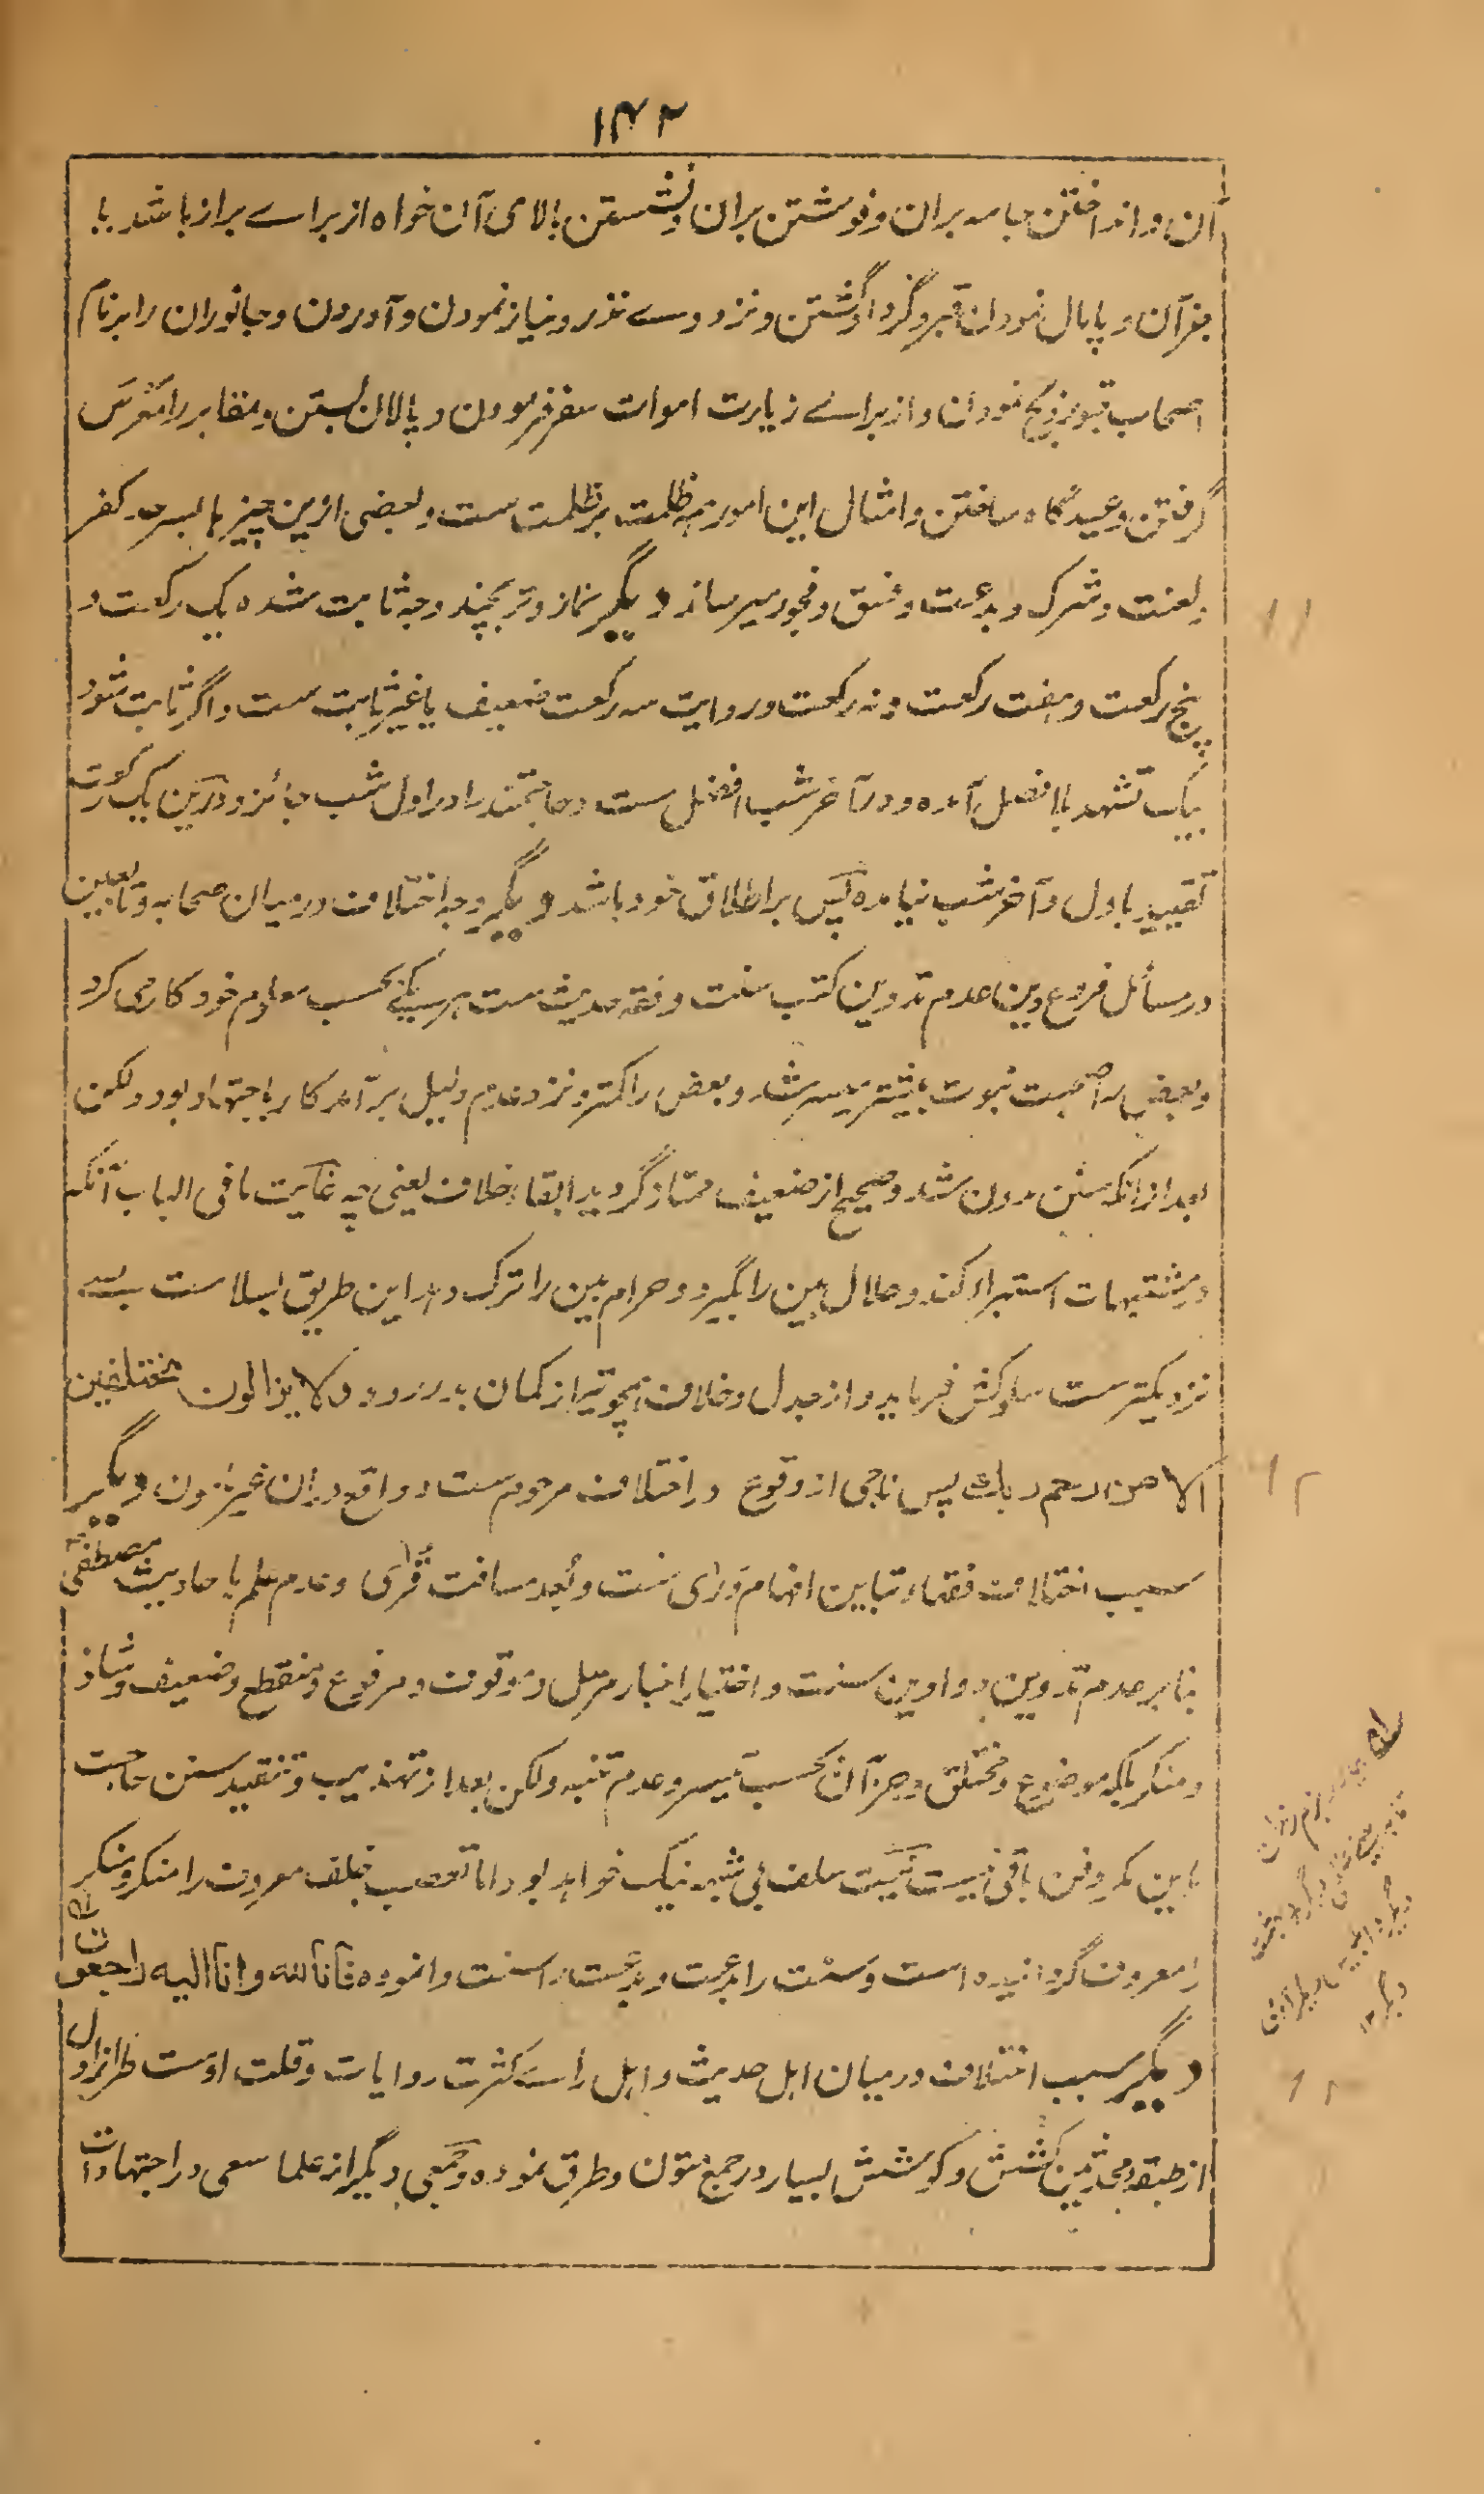 ۱۴۲
آن و انداختن جامه بران و نوشتن بران و نشستن بالای آن خواه از براے براز باشد یا
جز آن و پامال نمودن قبر و گرد او گشتن و نزد وے نذر و نیاز نمودن و آوردن و جانوران را بر نام
اصحاب قبور ذبح نمودن و از براے زیارت اموات سفر فرمودن و پالان بستن و مقابر را معرس
گرفتن و عیدگاه ساختن و امثال این امور همه ظلمت بر ظلمت ست و بعضی ازین چیزها بسرحد کفر
و لعنت و شرک و بدعت و فسق و فجور میرساند دیگر نماز وتر بچند وجه ثابت شده یک رکعت و
پنج رکعت و هفت رکعت و نه رکعت و روایت سه رکعت ضعیف یا غیر ثابت ست و اگر ثابت شود
بیک تشهد یا بفصل آمده و در آخر شب افضل ست و حاجتمند را در اول شب جائز و درین یک رکعت
تقیید باول و آخر شب نیامده پس بر اطلاق خود باشد دیگر وجه اختلاف در میان صحابه و تابعین
در مسائل فروع دین عدم تدوین کتب سنت و فقه حدیث ست هر یکے بحسب معلوم خود کار می کرد
و بعض را صحبت نبوت بیشتر میسر شد و بعض را کمتر و نزد عدم دلیل برآمد کار باجتهاد بود ولکن
بعد ازانکه سنن مدون شد و صحیح از ضعیف ممتاز گردید ابقاء خلاف یعنی چه غایت ما فی الباب آنکه
در مشتبهات استبراء کند و حلال بین را بگیرد و حرام بین را ترک دهد این طریق بسلامت بسے
نزدیکتر ست سلوکش فرماید و از جدل و خلاف همچو تیر از کمان بدر رود ولا یزالون مختلفین
الا من رحم ربك پس ناجی از وقوع در اختلاف مرحوم ست و واقع دران غیر آن دیگر
سبب اختلاف فقهاء تباین افهام و رای ست و بُعد مسافت قُریٰ و عدم علم باحادیث مصطفیٰ
بنا بر عدم تدوین دواوین سنت و اختیار اخبار مرسل و موقوف و مرفوع و منقطع و ضعیف و شاذ
و منکر بلکه موضوع و مختلق و جز آن بحسب تیسر و عدم تنبه ولکن بعد از تهذیب و تنقید سنن حاجت
باین مکر و فن باقی نیست نیت سلف بی شبهه نیک خواهد بود اما تعصب خلف معروف را منکر و منکر
را معروف گردانیده است و سنت را بدعت و بدعت را سنت وانموده فانا لله وانا الیه راجعون
دیگر سبب اختلاف در میان اهل حدیث و اهل راے کثرت روایات و قلت اوست طراز اول
از طبقه محدثین کشش و کوشش بسیار در جمع متون و طرق نموده و جمعی دیگر از علما سعی در اجتهادات